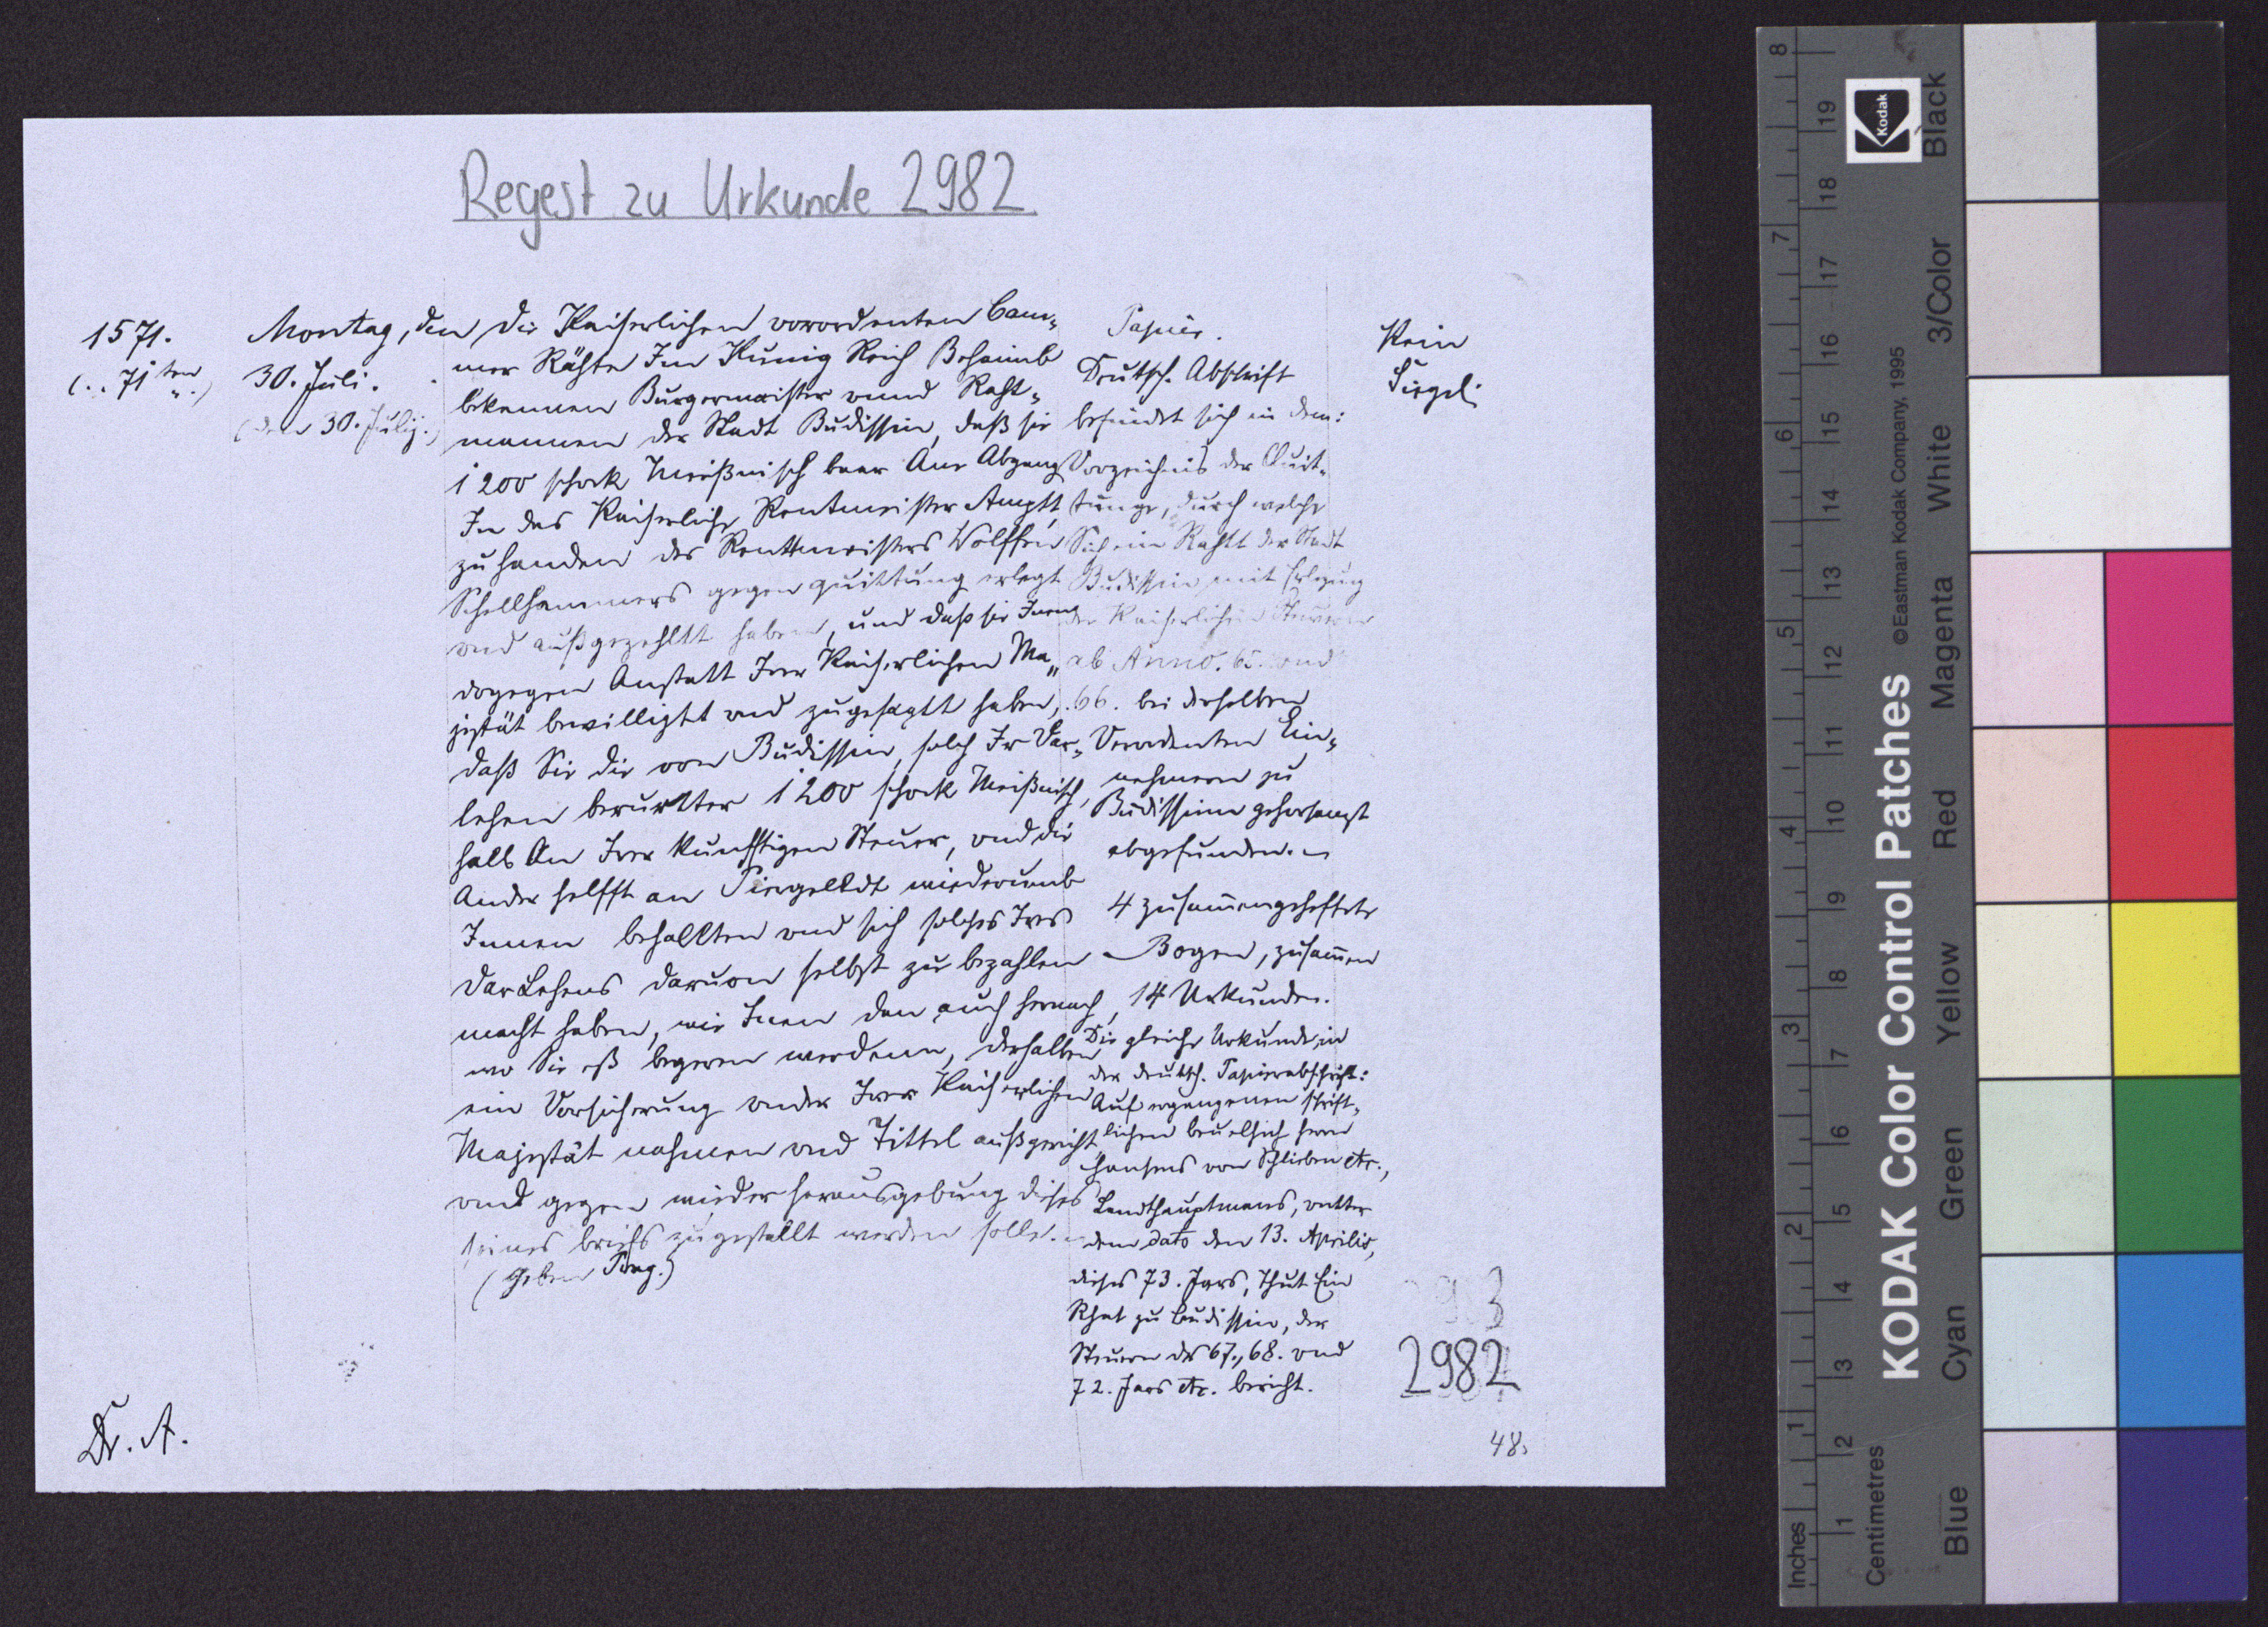 Regest zu Urkunde 2982
1571.
(.. 71 ten ..)
Montag, den
30. Juli.
(den 30. Julij.)
Die Kaiserlichen verordenten Cam-
mer Räthe Im Kunig Reich Behaimb
bekennen Burgermaister vnnd Raht-
mannen der Stadt Budissin, daß sie
1200 schock Meißnisch baar Ane Abgang
In das Kaiserliche Rentmeister Amptt,
zu handen des Renttmeisters Wolffen
Schellhammers gegen quittung erlegt
vnd außgezehltt haben, und daß sie Inen
dogegen Anstatt Irer Kaiserlichen Ma-
jestät bewilligtt vnd zugesagtt haben,
daß Sie die von Budissin, solch Ir Dar-
lehen berurtter 1200 schock Meißnisch,
halb An Irer kunfftigen Steuer, vnd die
Ander helfft an Biergelldt wiederumb
Innen behalltten vnd sich solches Ires
DarLehens daruon selbst zu bezahlen
macht haben, wie Inen dan auch hernach,
wo Sie eß begeren werdenn, deshalben
ein Versicherung vnder Irer Kaiserlichen
Majestät nahmen vnd Tittel außgericht
vnd gegen wieder herausgebung dieses
seines briefs zugestellt werden solle.
(Geben Prag.)
Papier.
Deutsch. Abschrift
befindet sich in dem:
Vorzeichnis der Quit-
tunge, durch welche
Sich ein Rahtt der Stadt
Budissin mit Erlegung
der Kaiserlichen Steweren
ab Anno. 65. vnd
66. bei derselben
Verordenten Ein-
nehmern zu
Budissinn gehorsambst
abgefunden.
4 zusammengeheftete
Bogen, zusammen
14 Urkunden.
Die gleiche Urkunde in
der deutsch. Papierabschrift:
Auf ergangenen schrift-
lichen beuelhich herrn
Hansens von Schlieben etc.,
Landthauptmans, vntter
dem dato den 13. Aprilis,
dieses 73. Jars, Thut Ein
Rhat zu Budissin, der
Steuern des 67., 68. vnd
72. Jars etc. bericht.
Kein
Siegel.
2982
48.
Dr. A.
KODAK Color Control Patches
©Eastman Kodak Company, 1995
Kodak
Inches
1 2 3 4 5 6 7 8
Centimetres
1 2 3 4 5 6 7 8 9 10 11 12 13 14 15 16 17 18 19
Blue
Cyan
Green
Yellow
Red
Magenta
White
3/Color
Black